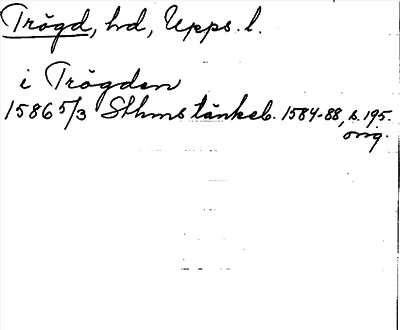 Trögd, hd, Upps. l.
i Trögden
1586 5/3 Sthms tänkeb. 1584-88, s. 195.
orig.